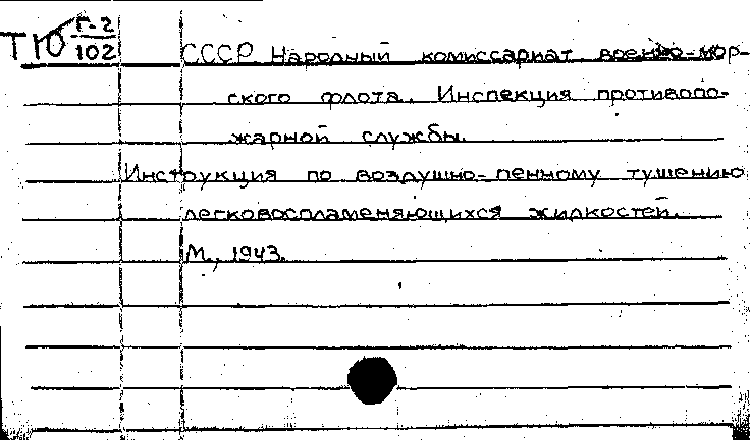 ТЮ Г-2/102
СССР Народный комиссариат военно-мор-
ского флота. Инспекция противопо-
жарной службы.
Инструкция по воздушно-пенному тушению
легковоспламеняющихся жидкостей.
М., 1943.